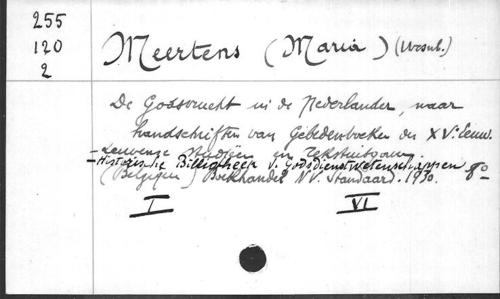 255
120
2
Meertens (Maria) (Ursul.)
De Godsvrucht in de Nederlanden, naar
handschriften van Gebedenboeken der XVe Eeuw.
Leuvense Studiën en Tekstuitgaven
- Historische Bibliotheek v. Godsdienstwetenschappen
(Belgien) Boekhandel N.V. Standaard. 1930. 8°
I VI